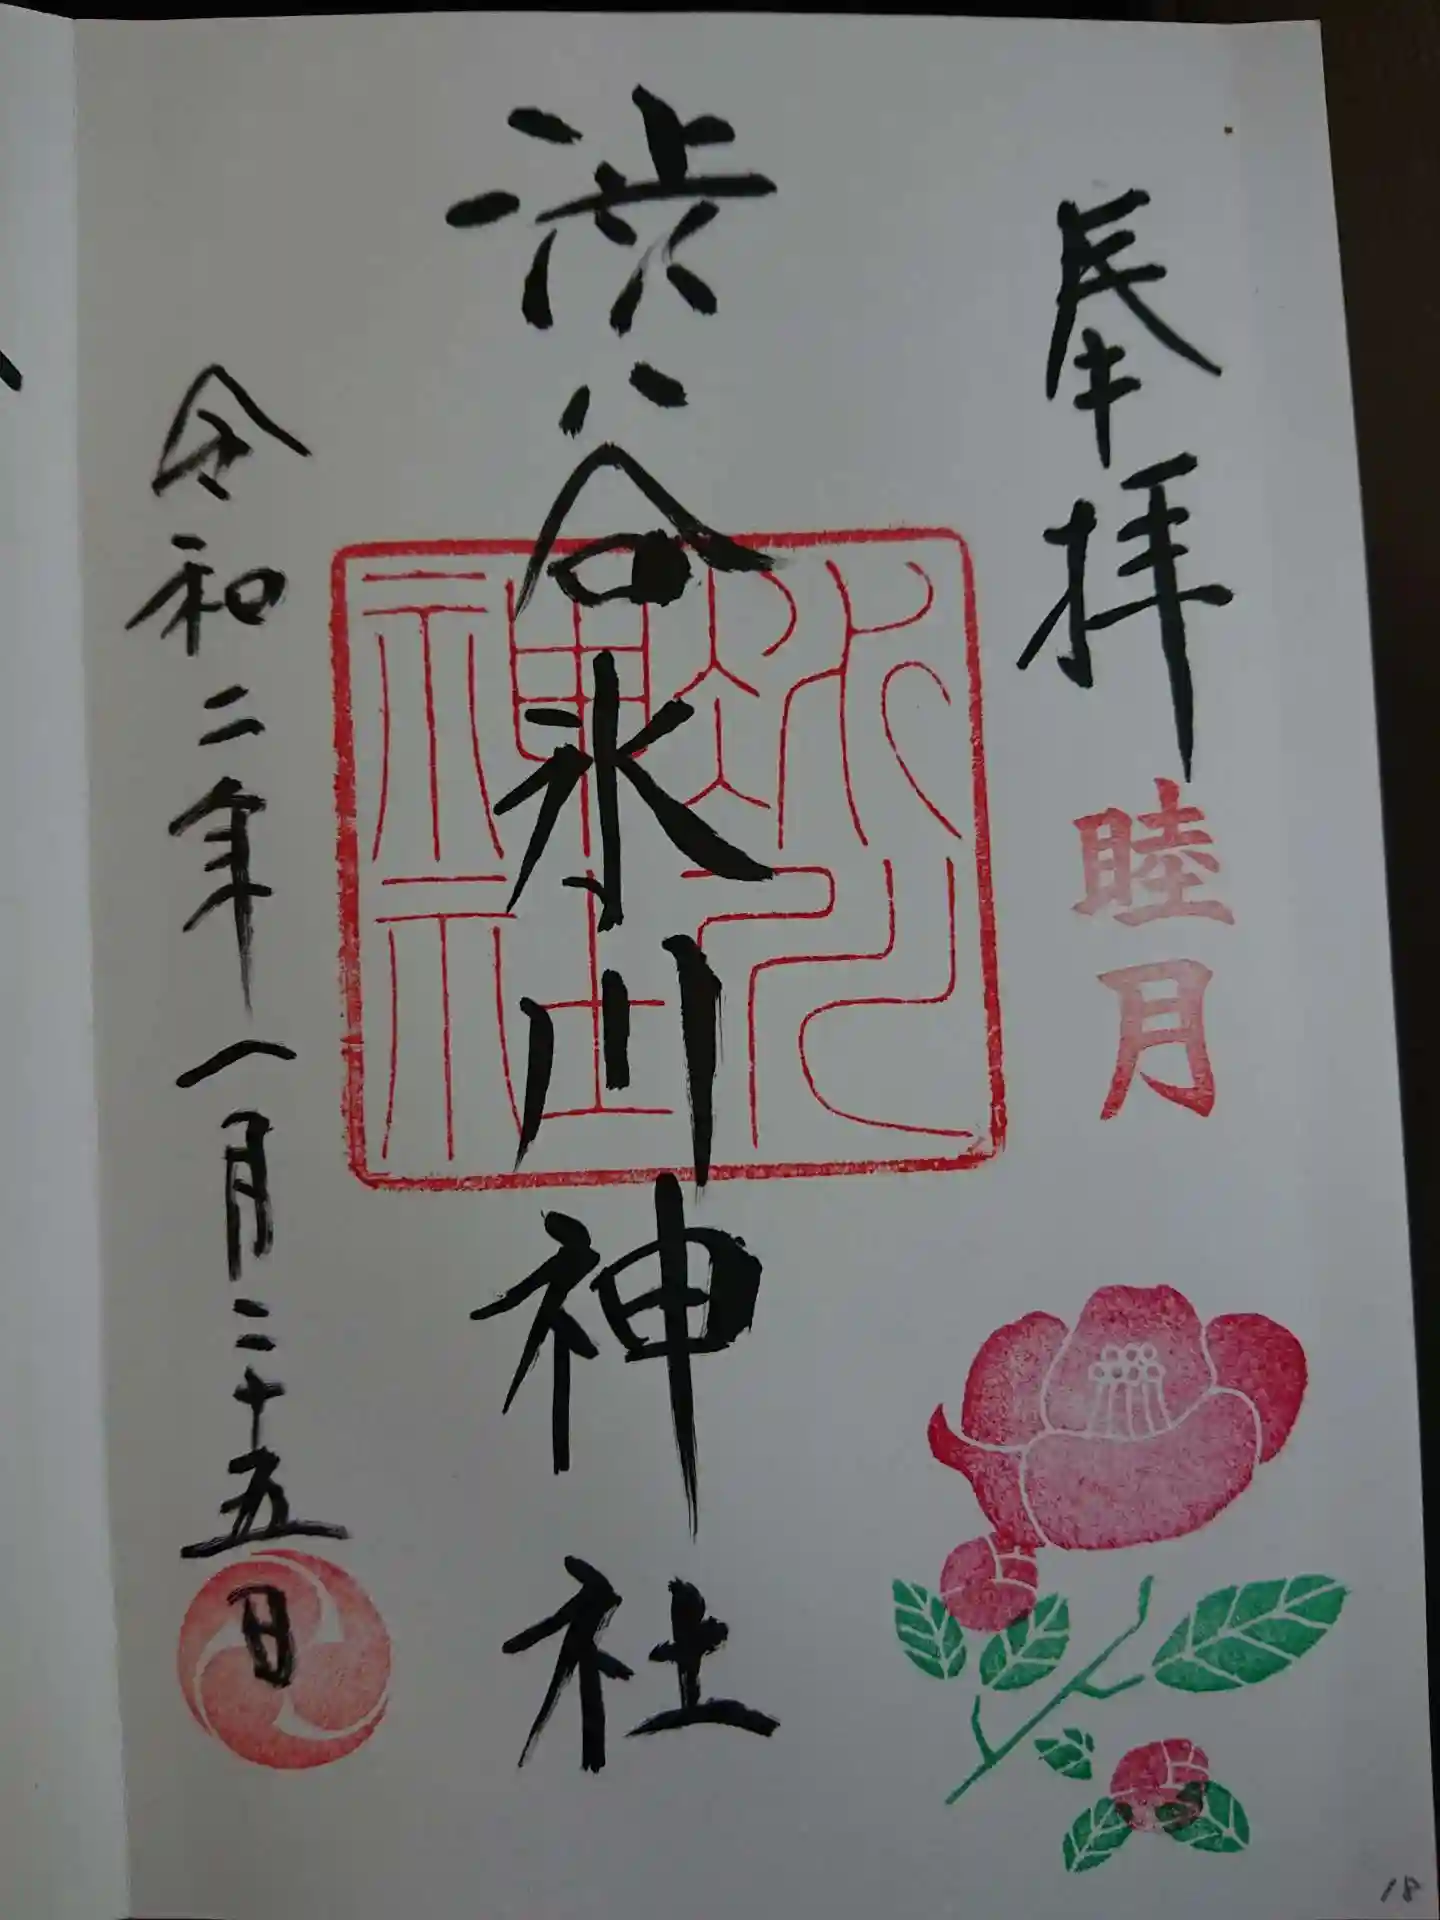 奉拝
睦月
渋谷氷川神社
氷川神社
令和二年一月二十五日
18